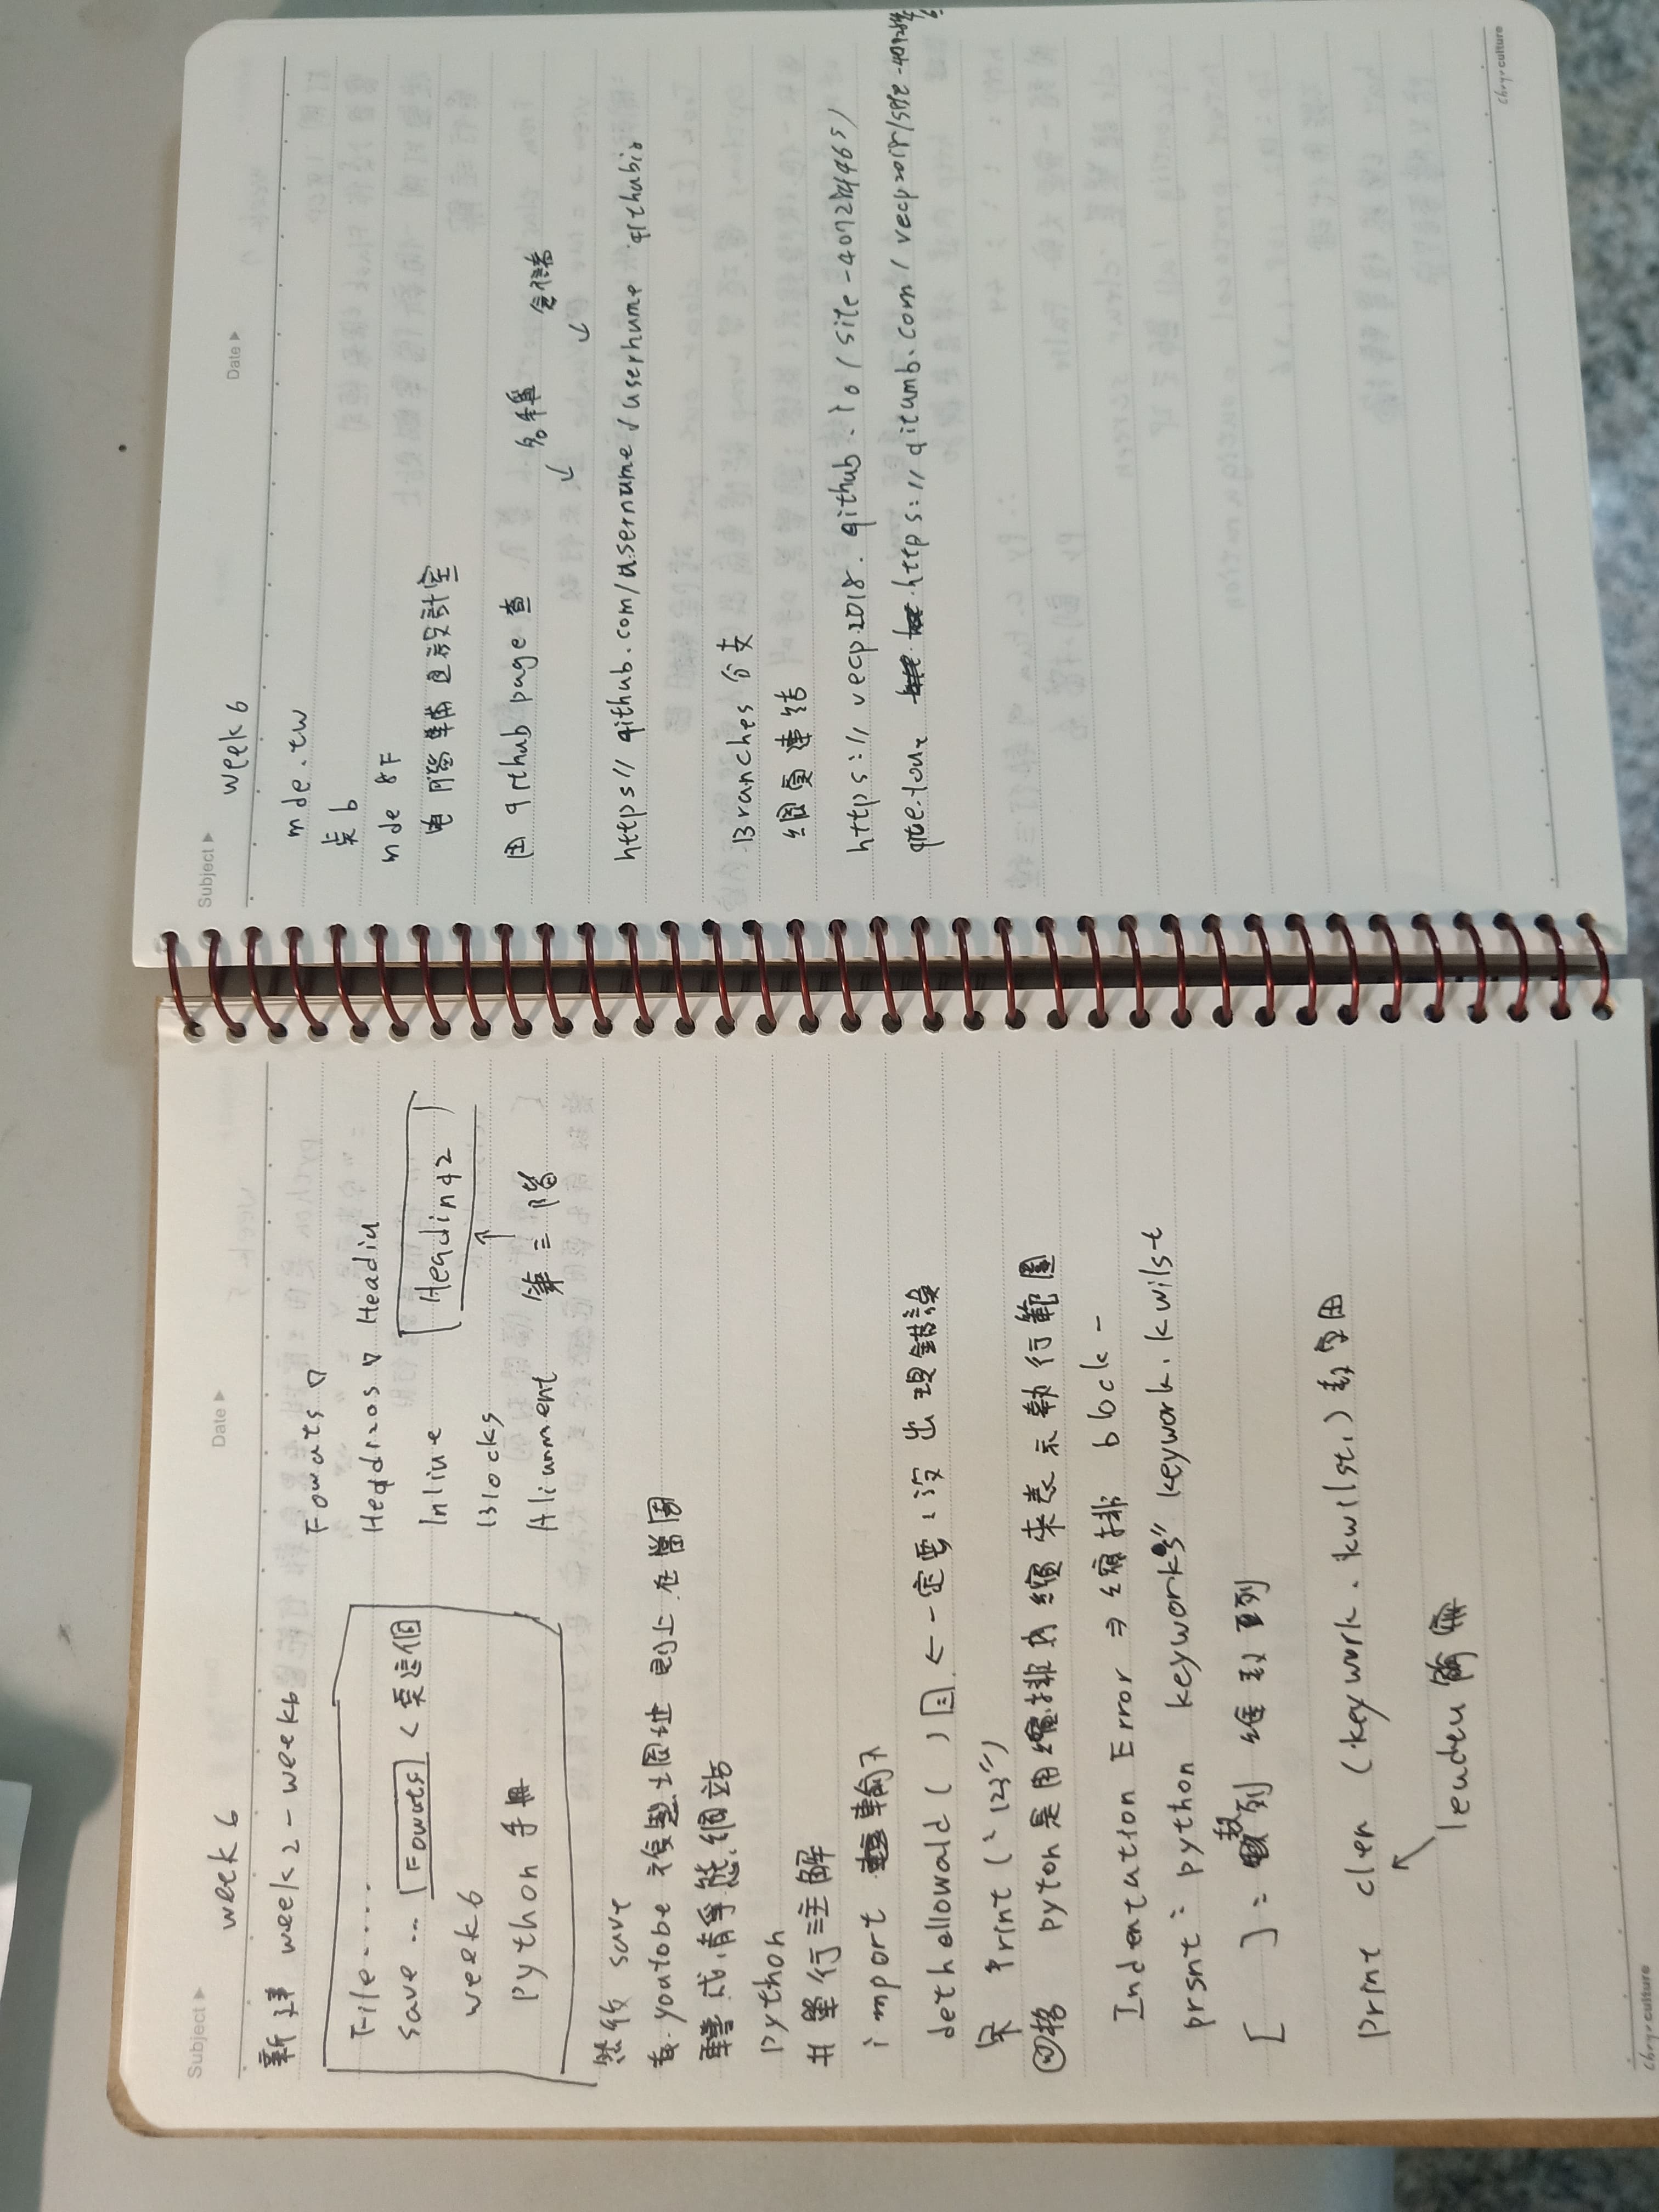 Subject ▶ week 6 Date ▶
新建 week2-week6
File....
save ... Fowats < 要這個
week6
python 手冊
Fowats ▽
Headizos ▽ Headin
Inline
Heading2
Blocks
Aliunment 第三階
然後 save
youtobe 複製網地 在當周
轉成靜態網站
python
# 單行註解
import 輸入
dethellowald ( ) : ← 一定要 沒出現錯誤
Print ("123")
格 pyton是用縮排內縮來表示執行範圍
Indentation Error ⇒ 縮排 block -
prsnt: python keywork's" keywork. kwilst
[ ] = 數列 維數列
Print clen (keywork. kwilst.) 數字用
↑
leudeu
Chuyu culture
Subject ▶ week 6 Date ▶
mde.tw
桌6
mde 8F
電腦輔助設計室
用 github page 查
名稱
↓ ↓
https// github.com/username / username githubio
Branches 分支
網頁連結
https:// vecp2018. github. io / site-
https:// gitumb.com / vecp2018/site-
Chuyu culture